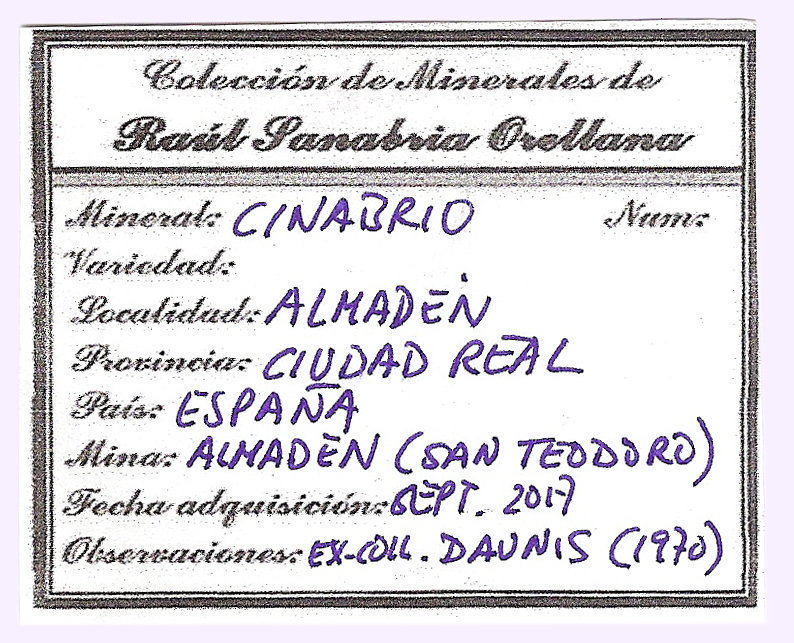 Colección de Minerales de
Raúl Sanabria Orellana
Mineral: CINABRIO Num:
Variedad:
Localidad: ALMADÉN
Provincia: CIUDAD REAL
País: ESPAÑA
Mina: ALMADEN (SAN TEODORO)
Fecha adquisición: SEPT. 2017
Observaciones: EX-COLL. DAUNIS (1970)